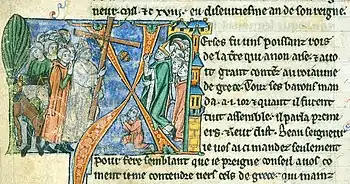 neuf cenz & xviij. & el diseuitiesme an de son reigne.
erses fu uns poissanz rois
de la tre qui anon aise & auo
it grant contez au roiaume
de grece. Touz ses barons man
da . & quant il furent
tuit assemble . il parla premi
ers . & leur dist . Beau seigneur
ie vos ai ci mander seulement
pour fere semblant que ie preigne conseil a vos co
ment ie me contendre vers cels de grece . qui